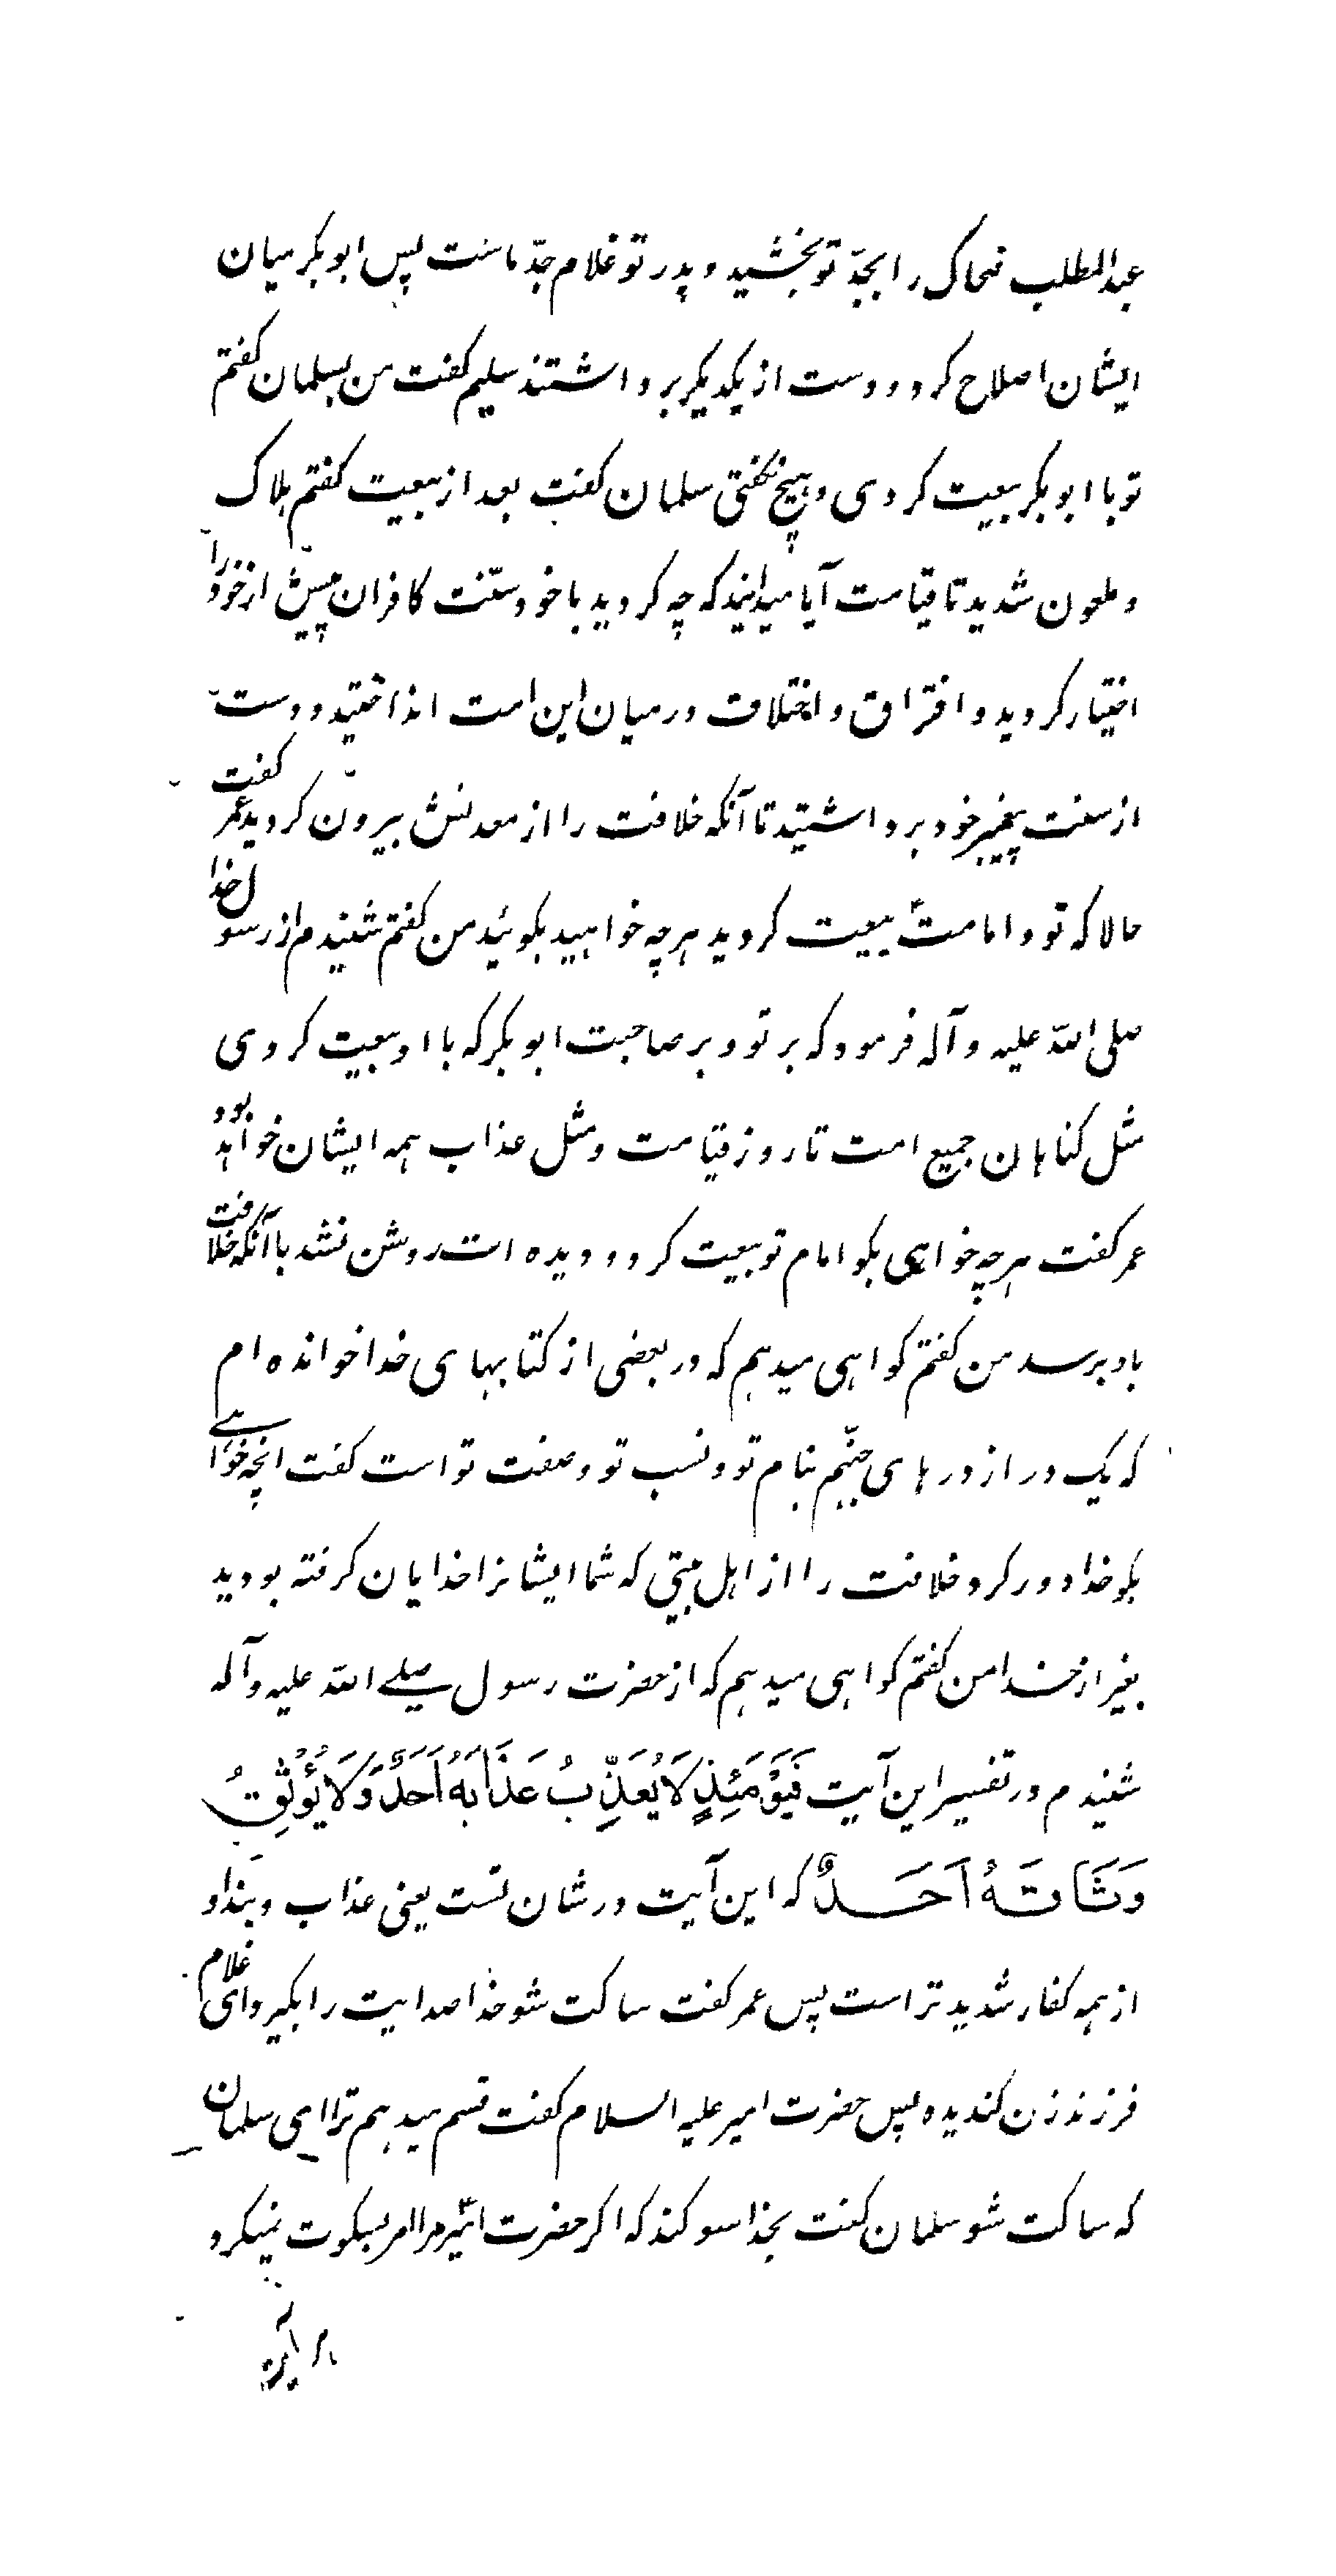 عبدالمطلب ضحاک را بجدّ تو بخشید و پدر تو غلام جدّ ماست پس ابوبکر میان
ایشان اصلاح کرد و دست از یکدیگر برداشتند سلیم کفت من بسلمان کفتم
تو با ابوبکر بیعت کردی و هیچ نکفتی سلمان کفت بعد از بیعت کفتم هلاک
و ملعون شدید تا قیامت آیا میدانید که چه کردید با خود سنّت کافران پیش از خود را
اختیار کردید و افتراق و اختلاف در میان این امت انداختید و دست
از سنت پیغمبر خود برداشتید تا آنکه خلافت را از معدنش بیرون کردید عمر کفت
حالا که تو و امامت بیعت کردید هرچه خواهید بکوئید من کفتم شنیدم از رسول خدا
صلی الله علیه و آله فرمود که بر تو و بر صاحبت ابوبکر که با او بیعت کردی
مثل کناهان جمیع امت تا روز قیامت و مثل عذاب همه ایشان خواهد بود
عمر کفت هرچه خواهی بکو امام تو بیعت کرد و دیده ات روشن نشد با آنکه خلافت
باو برسد من کفتم کواهی میدهم که در بعضی از کتابهای خدا خوانده ام
که یک در از درهای جهنّم بنام تو و نسب تو و صفت تو است کفت انچه خواهی
بکو خدا دور کرد خلافت را از اهل بیتی که شما ایشانرا خدایان کرفته بودید
بغیر از خدا من کفتم کواهی میدهم که از حضرت رسول صلی الله علیه و آله
شنیدم در تفسیر این آیت فَیَوْمَئِذٍ لَا یُعَذِّبُ عَذَابَهُ اَحَدٌ وَلَا یُوْثِقُ
وَثَاقَهُ اَحَدٌ که این آیت در شان تست یعنی عذاب و بند او
از همه کفار شدید تر است پس عمر کفت ساکت شو خدا صدایت را بکیرد ای غلام
فرزند زن کندیده پس حضرت امیر علیه السلام کفت قسم میدهم ترا ای سلمان
که ساکت شو سلمان کفت بخدا سوکند که اکر حضرت امیر مرا امر بسکوت نمیکرد